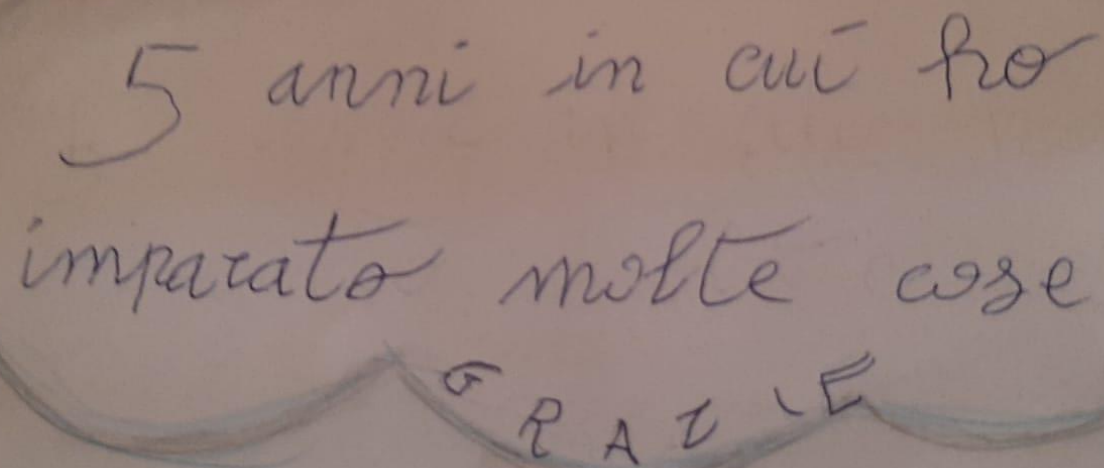 5 anni in cui ho
imparato molte cose
GRAZIE